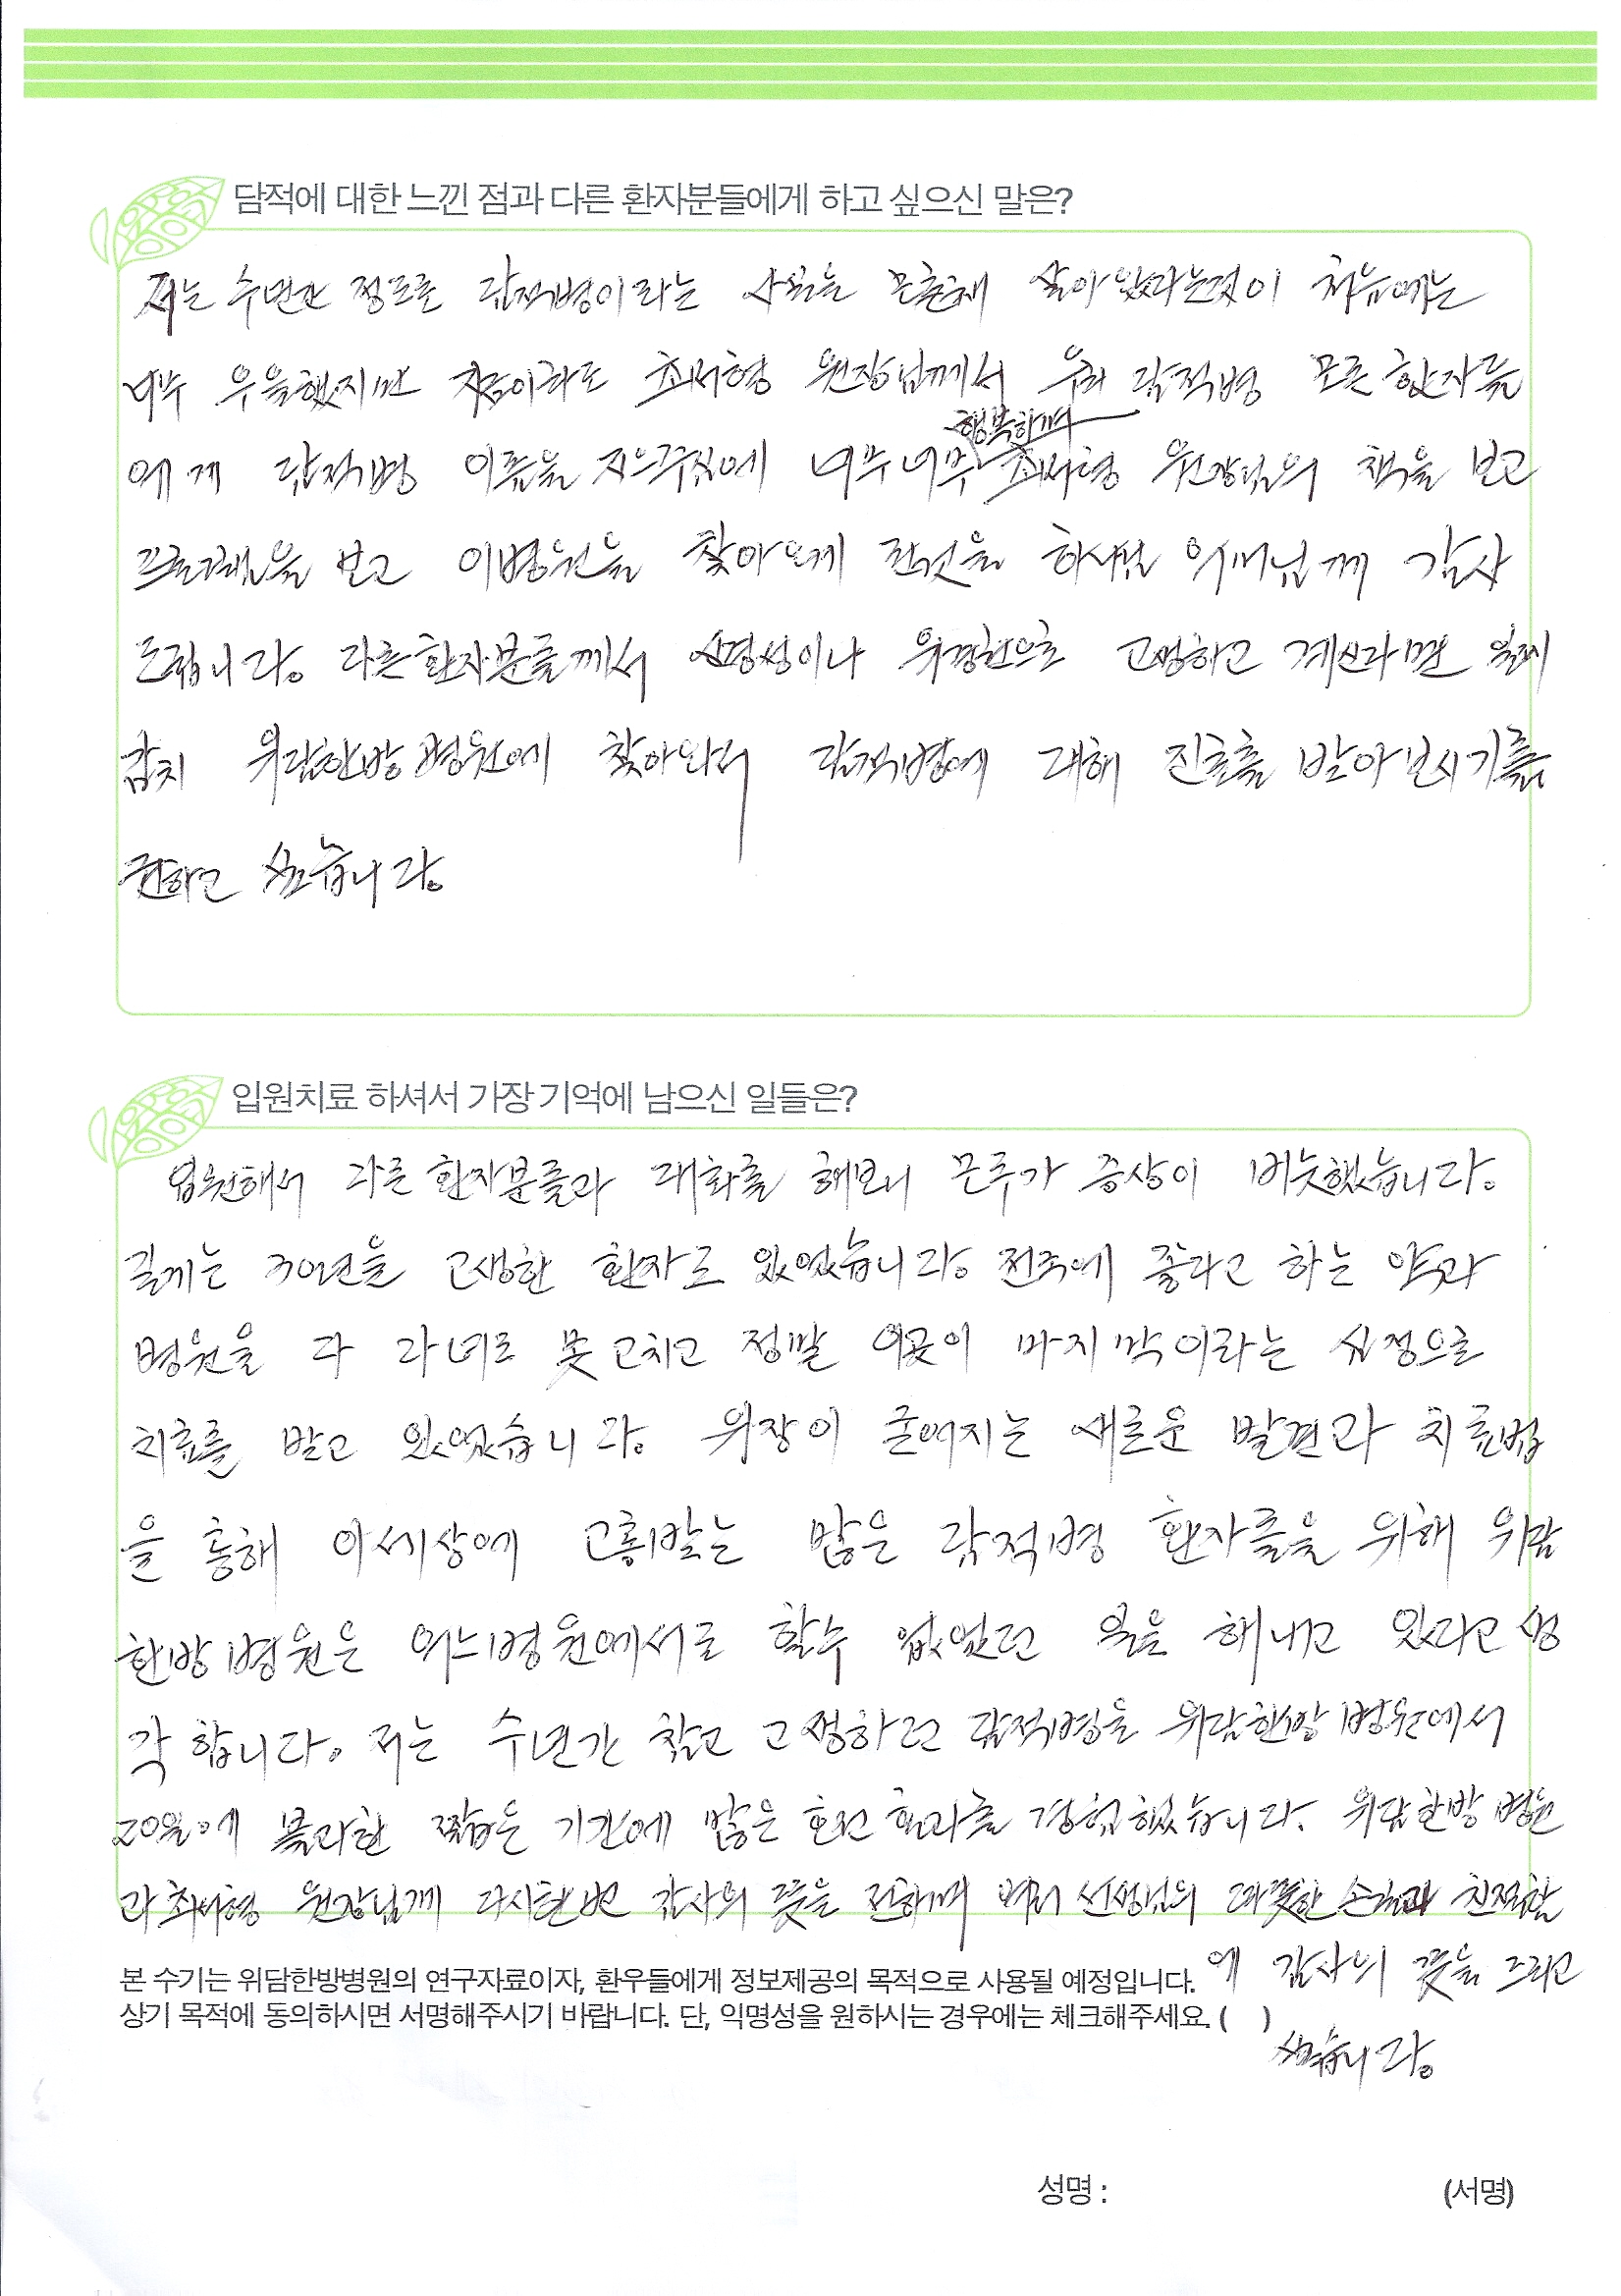 담적에 대한 느낀 점과 다른 환자분들에게 하고 싶으신 말은?
저는 수년간 정도로 담적병이라는 사실을 모른채 살아왔다는것이 처음에는
너무 우울했지만 지금이라도 최서형 원장님께서 우리 담적병 모든 환자들
행복하며
에게 담적병 이름을 지으주심에 너무너무 최서형 원장님의 책을 보고
프로그램을 보고 이병원을 찾아오게 된것을 하나님 아버님께 감사
드립니다. 다른환자분들께서 신경성이나 위경련으로 고생하고 계신다면
위담한방병원에 찾아와서 담적병에 대해 진료를 받아보시기를
권하고 싶습니다.
입원치료 하셔서 가장 기억에 남으신 일들은?
입원해서 다른 환자분들과 대화를 해보니 모두가 증상이 비슷했습니다.
길게는 30년을 고생한 환자도 있었습니다. 전국에 좋다고 하는 약과
병원을 다 다녀도 못고치고 정말 이곳이 마지막이라는 심정으로
치료를 받고 있었습니다. 위장이 굳어지는 새로운 발견과 치료법
을 통해 이세상에 고통받는 많은 담적병 환자들을 위해 위담
한방병원은 여느병원에서도 할수 없었던 일을 해내고 있다고 생
각합니다. 저는 수년간 참고 고생하던 담적병을 위담한방병원에서
20일에 불과한 짧은 기간에 많은 호전 효과를 경험했습니다. 위담한방병원
과 최서형 원장님께 다시한번 감사의 뜻을 전하며 여러 선생님의 따뜻한 손길과 친절함
에 감사의 뜻을 드리고
싶습니다.
본 수기는 위담한방병원의 연구자료이자, 환우들에게 정보제공의 목적으로 사용될 예정입니다.
상기 목적에 동의하시면 서명해주시기 바랍니다. 단, 익명성을 원하시는 경우에는 체크해주세요. ( )
성명 : (서명)